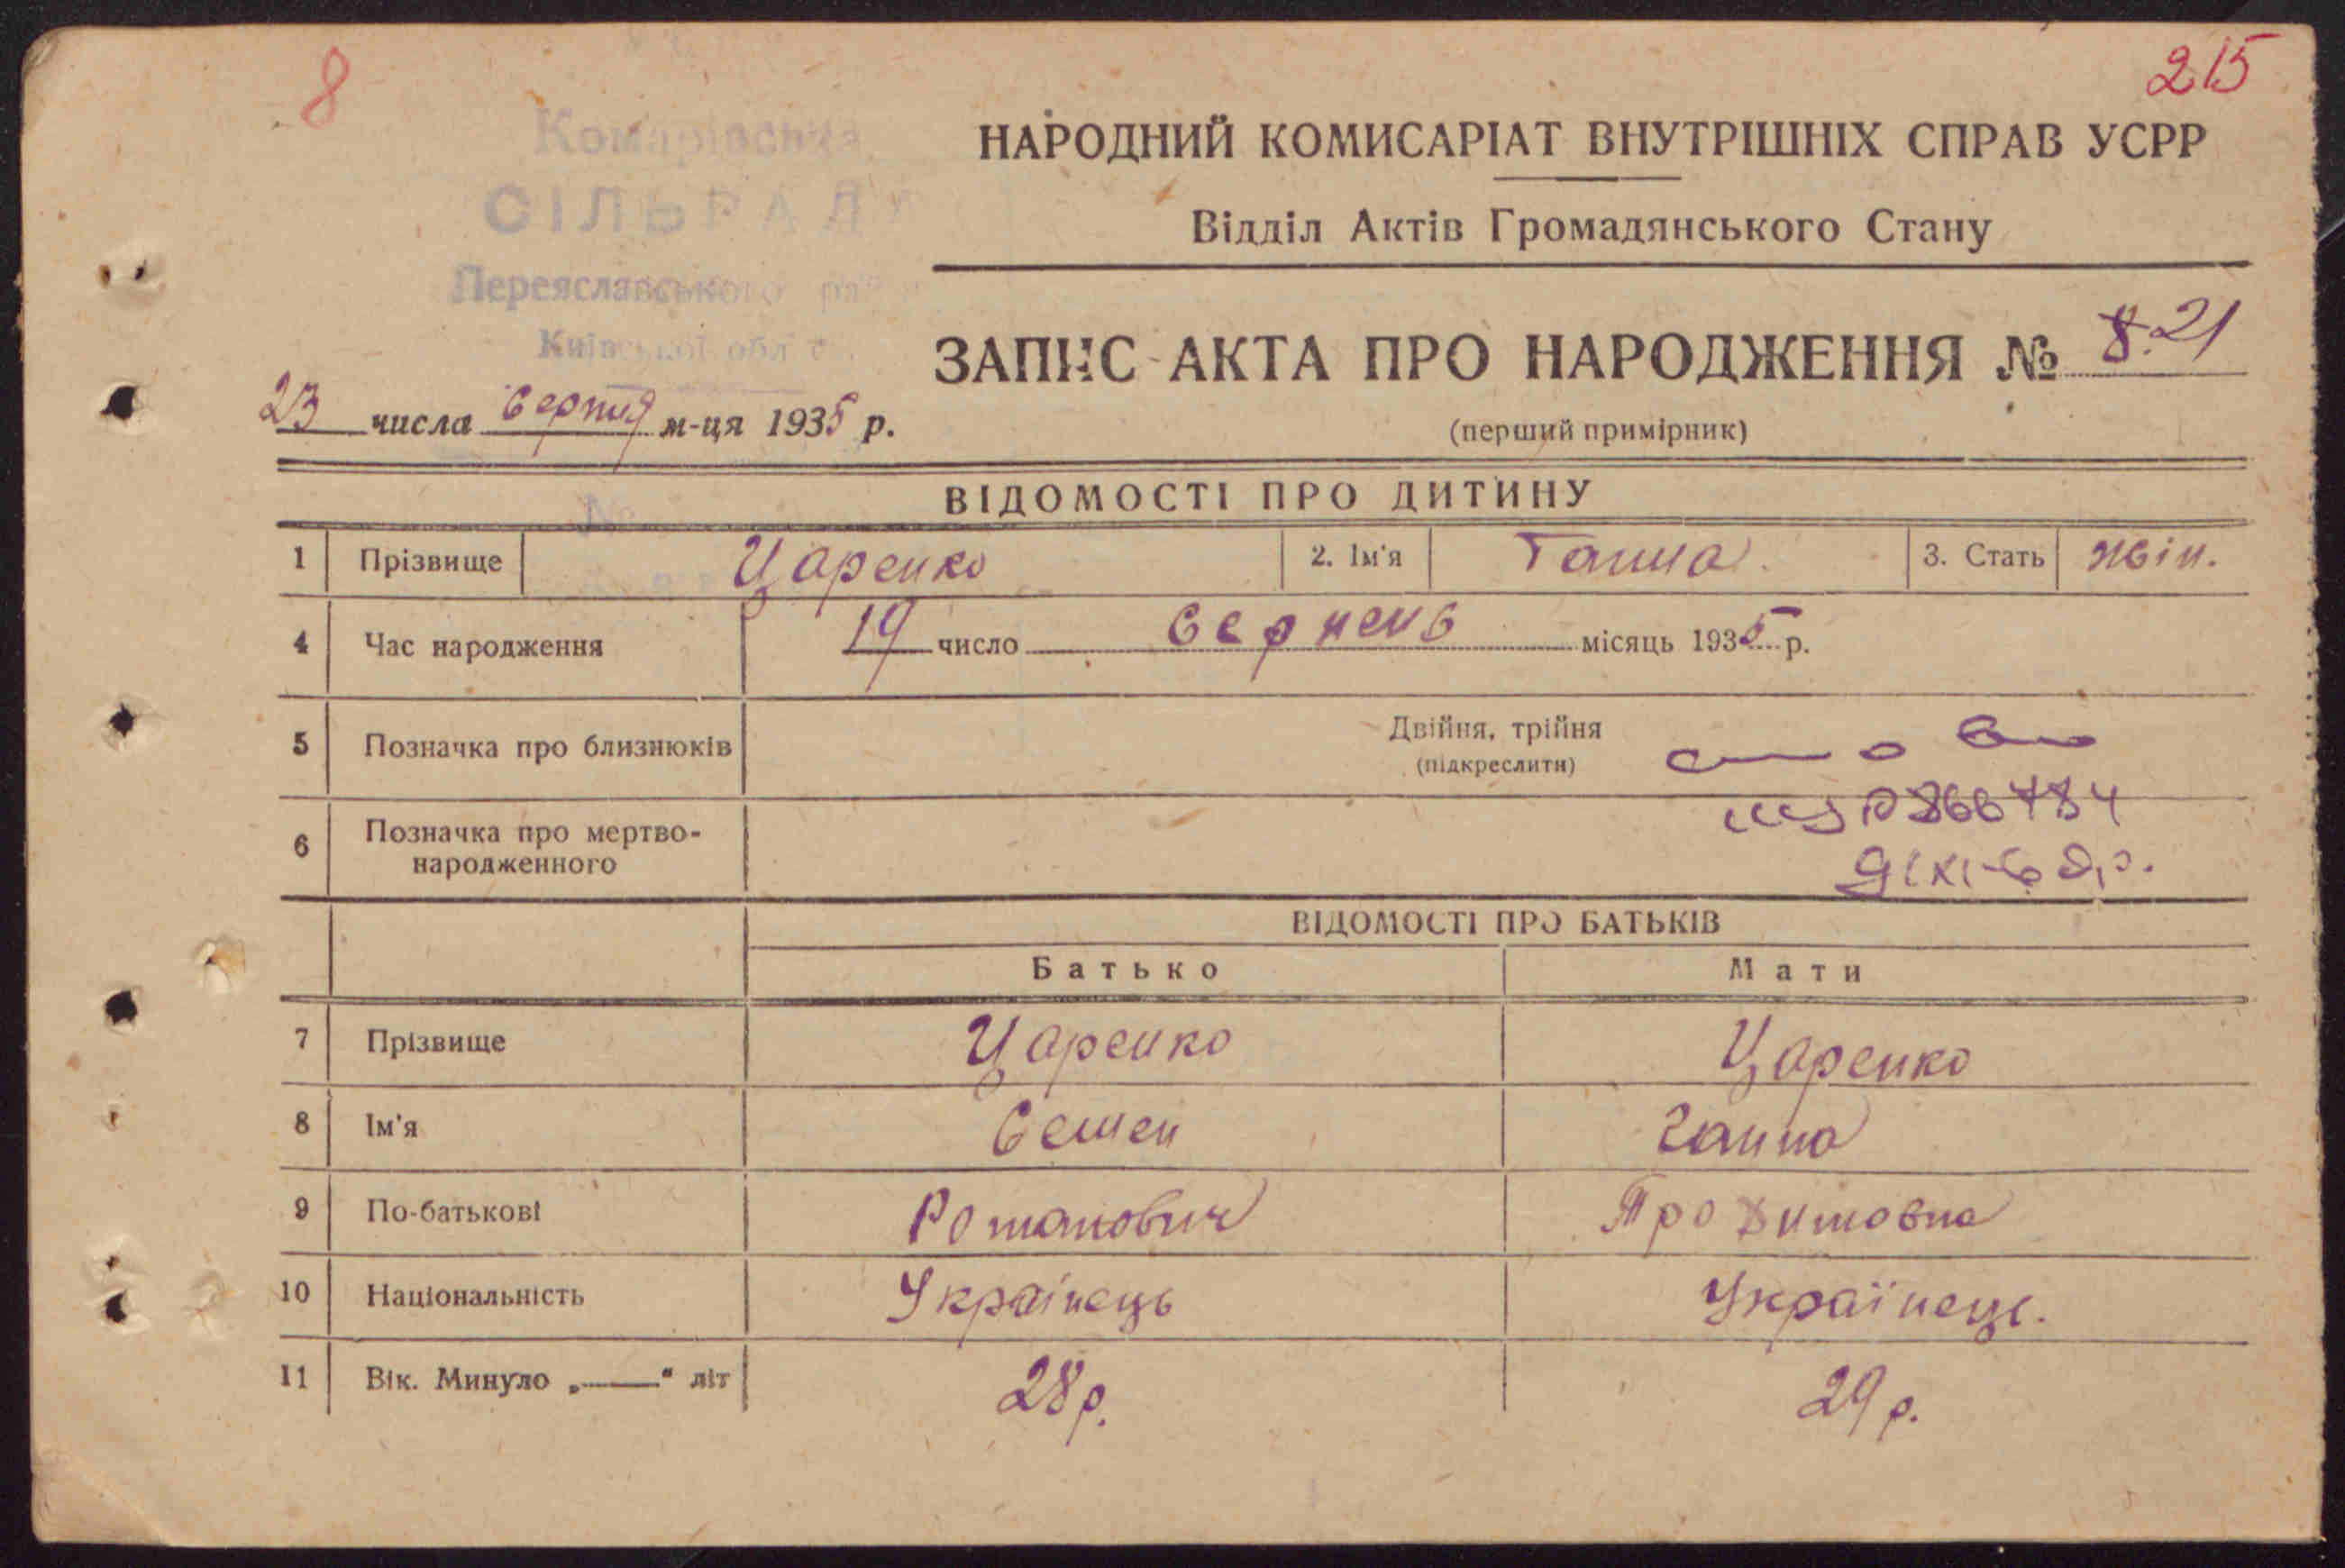 8
215
Комарівська
СІЛЬРАДА
Переяславського
Київської обл
НАРОДНИЙ КОМИСАРІАТ ВНУТРІШНІХ СПРАВ УСРР
Відділ Актів Громадянського Стану
ЗАПИС АКТА ПРО НАРОДЖЕННЯ № 8.21
(перший примірник)
23 числа серпня м-ця 1935 р.
№
ВІДОМОСТІ ПРО ДИТИНУ
1 Прізвище Царенко 2. Ім'я Ганна. 3. Стать жін.
4 Час народження 19 число серпень місяць 1935 р.
5 Позначка про близнюків Двійня, трійня
(підкреслити)
6 Позначка про мертво-
народженного
ВІДОМОСТІ ПРО БАТЬКІВ
Батько Мати
7 Прізвище Царенко Царенко
8 Ім'я Семен Ганна
9 По-батькові Романович
10 Національність Українець Українець.
11 Вік. Минуло „——“ літ 28 р. 29 р.